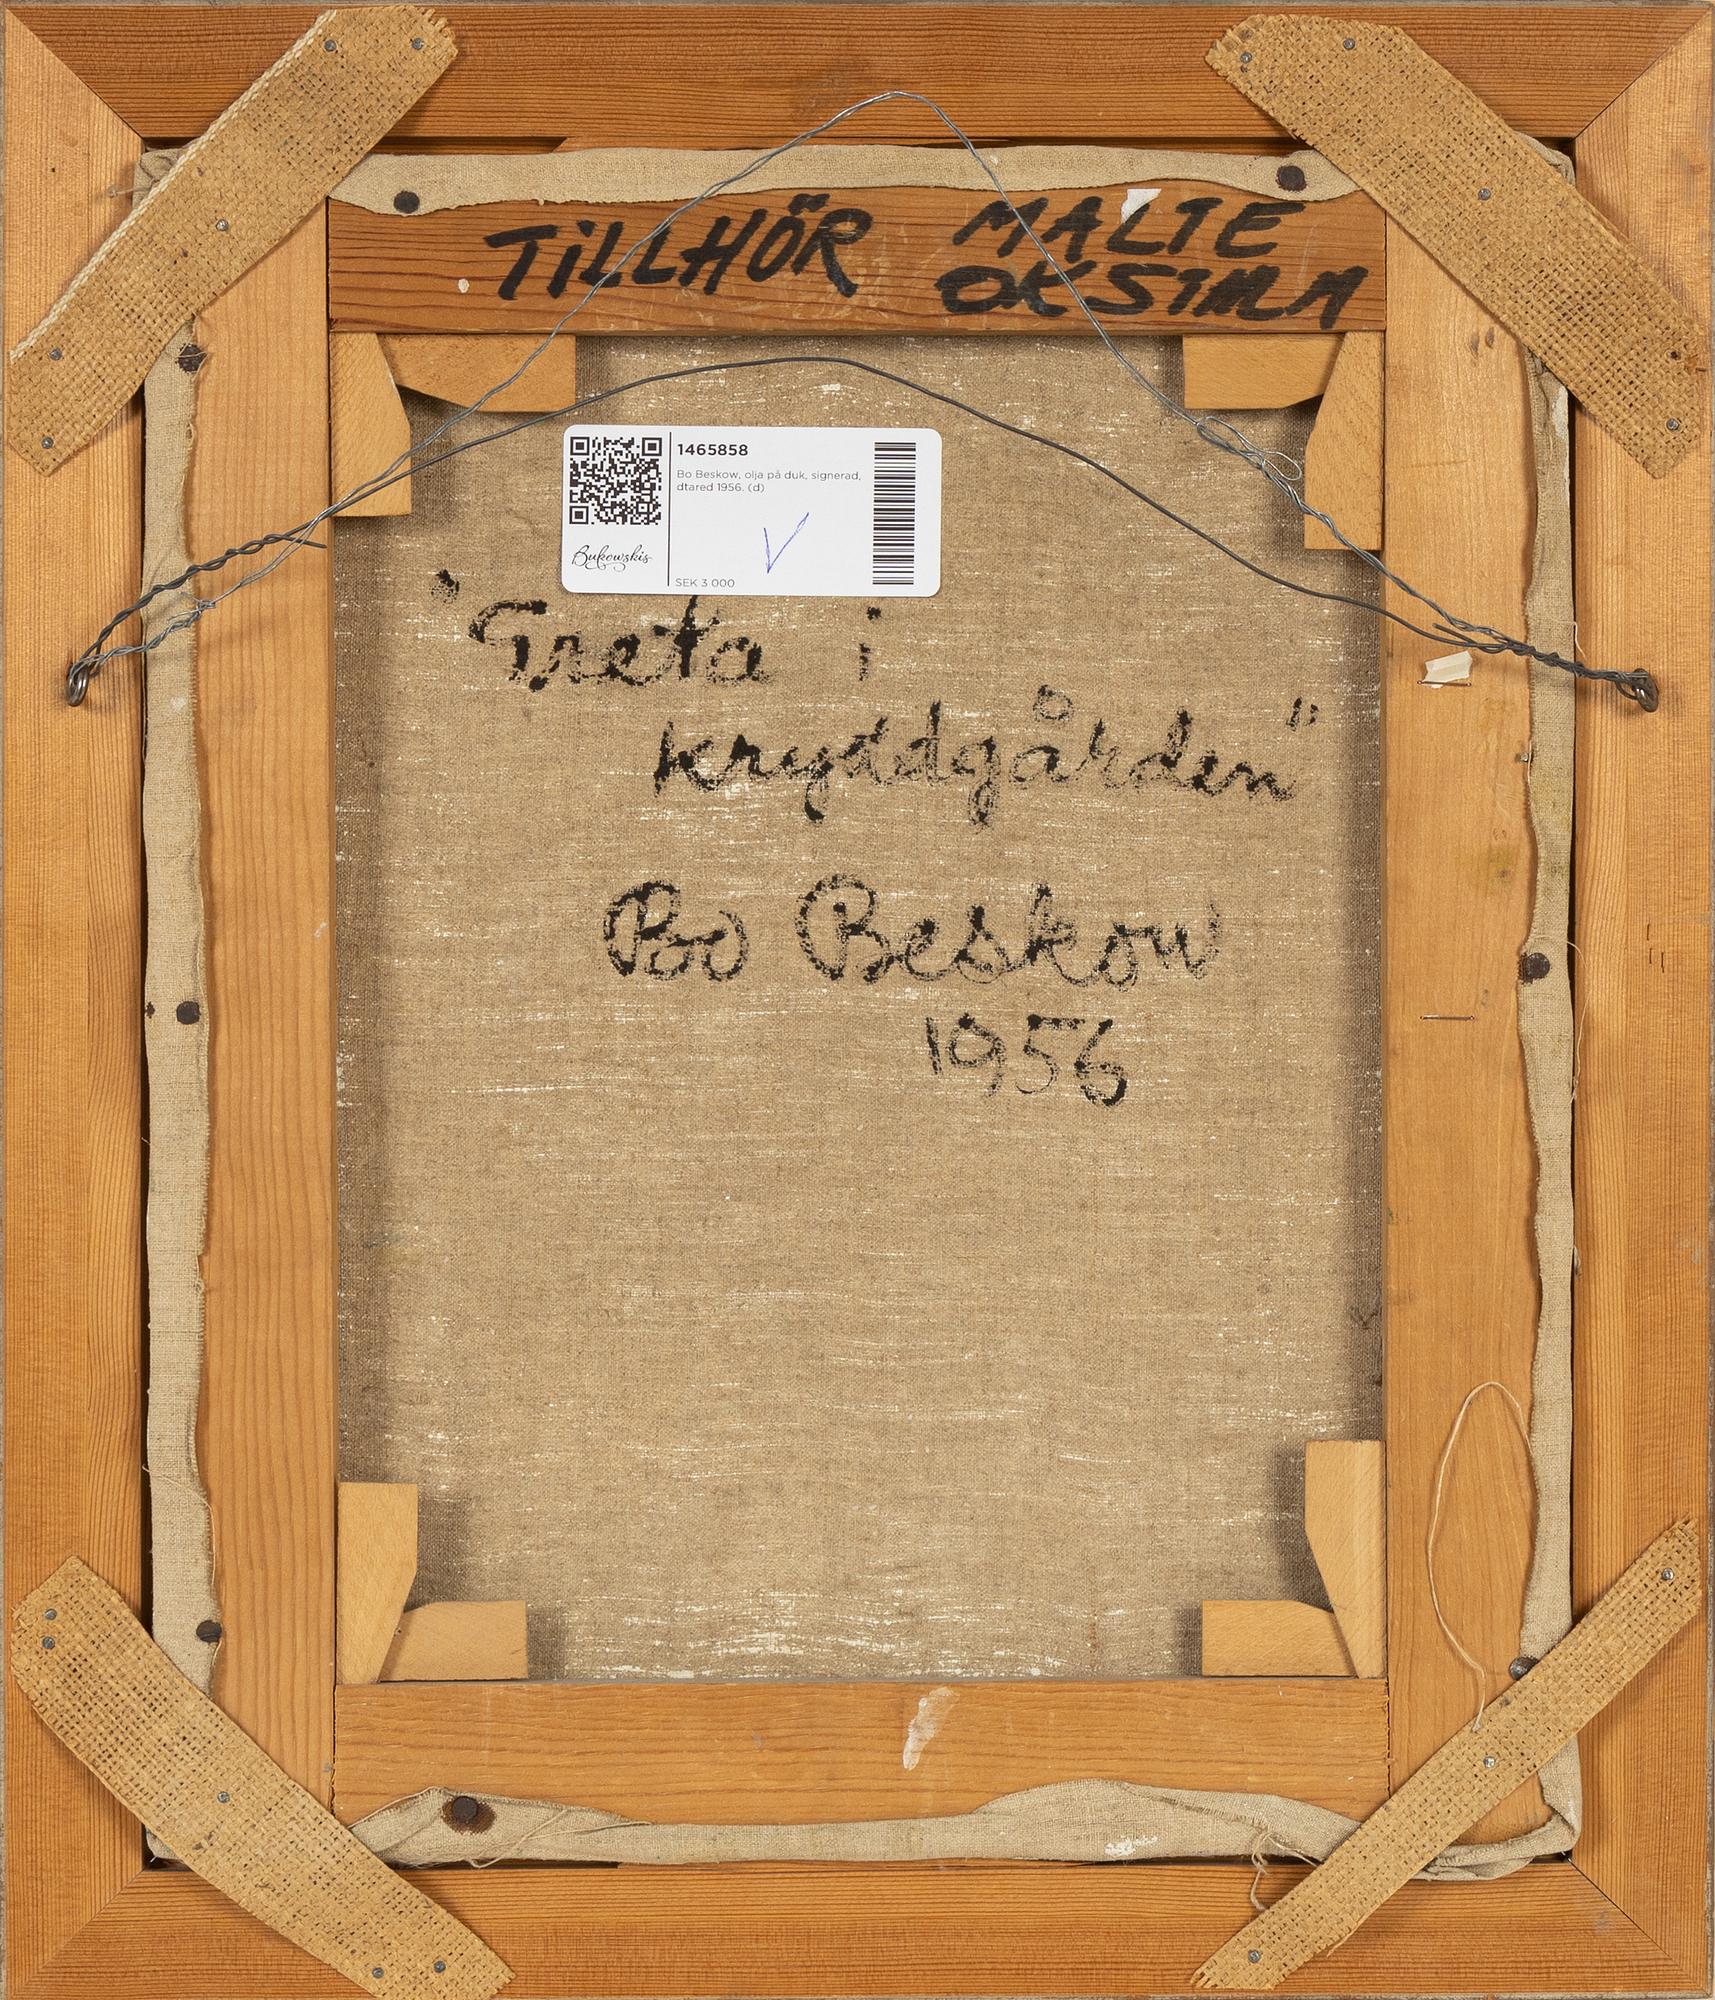 TILLHÖR MALTE
1465858
Bo Beskow, olja på duk, signerad,
dtared 1956. (d)
Bukowskis
SEK 3 000
"Greta i
kryddgården"
Bo Beskow
1956